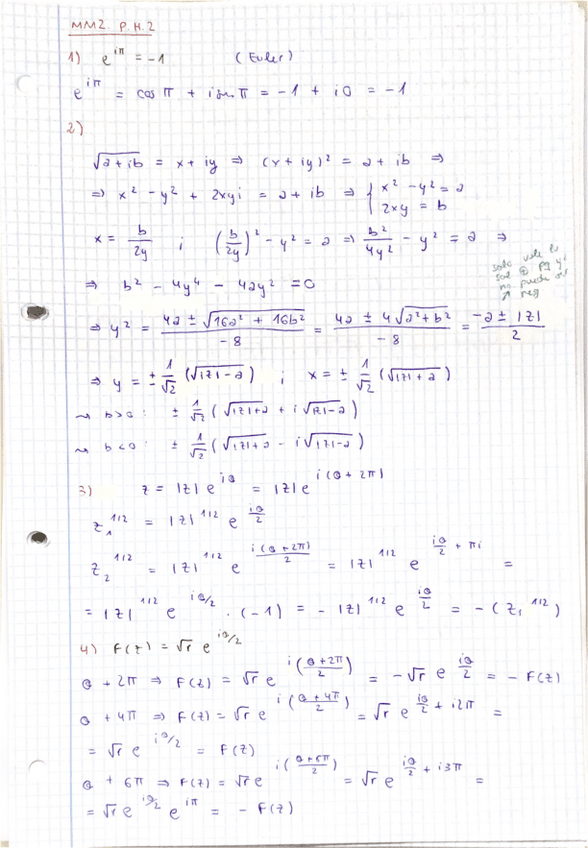 MM2. P.H.2
1) e^{iπ} = -1 (Euler)
e^{iπ} = cos π + i sen π = -1 + i0 = -1
2)
√(a+ib) = x + iy ⇒ (x + iy)² = a + ib ⇒
⇒ x² - y² + 2xyi = a + ib ⇒ { x² - y² = a
2xy = b
x = b/2y ; (b/2y)² - y² = a ⇒ b²/4y² - y² = a ⇒
solo vale la
sol ⊕ pq y²
no puede ser
neg
⇒ b² - 4y⁴ - 4ay² = 0
⇒ y² = (4a ± √(16a² + 16b²))/-8 = (4a ± 4√(a²+b²))/-8 = (-a ± |z|)/2
⇒ y = ± 1/√2 (√(|z|-a)) ; x = ± 1/√2 (√(|z|+a))
⇝ b>0: ± 1/√2 (√(|z|+a) + i√(|z|-a))
⇝ b<0: ± 1/√2 (√(|z|+a) - i√(|z|-a))
3) z = |z| e^{iθ} = |z| e^{i(θ + 2π)}
z₁^{1/2} = |z|^{1/2} e^{iθ/2}
z₂^{1/2} = |z|^{1/2} e^{i(θ+2π)/2} = |z|^{1/2} e^{iθ/2 + πi} =
= |z|^{1/2} e^{iθ/2} · (-1) = -|z|^{1/2} e^{iθ/2} = -(z₁^{1/2})
4) F(z) = √r e^{iθ/2}
θ + 2π ⇒ F(z) = √r e^{i((θ+2π)/2)} = -√r e^{iθ/2} = -F(z)
θ + 4π ⇒ F(z) = √r e^{i((θ+4π)/2)} = √r e^{iθ/2 + i2π} =
= √r e^{iθ/2} = F(z)
θ + 6π ⇒ F(z) = √r e^{i((θ+6π)/2)} = √r e^{iθ/2 + i3π} =
= √r e^{iθ/2} e^{iπ} = -F(z)